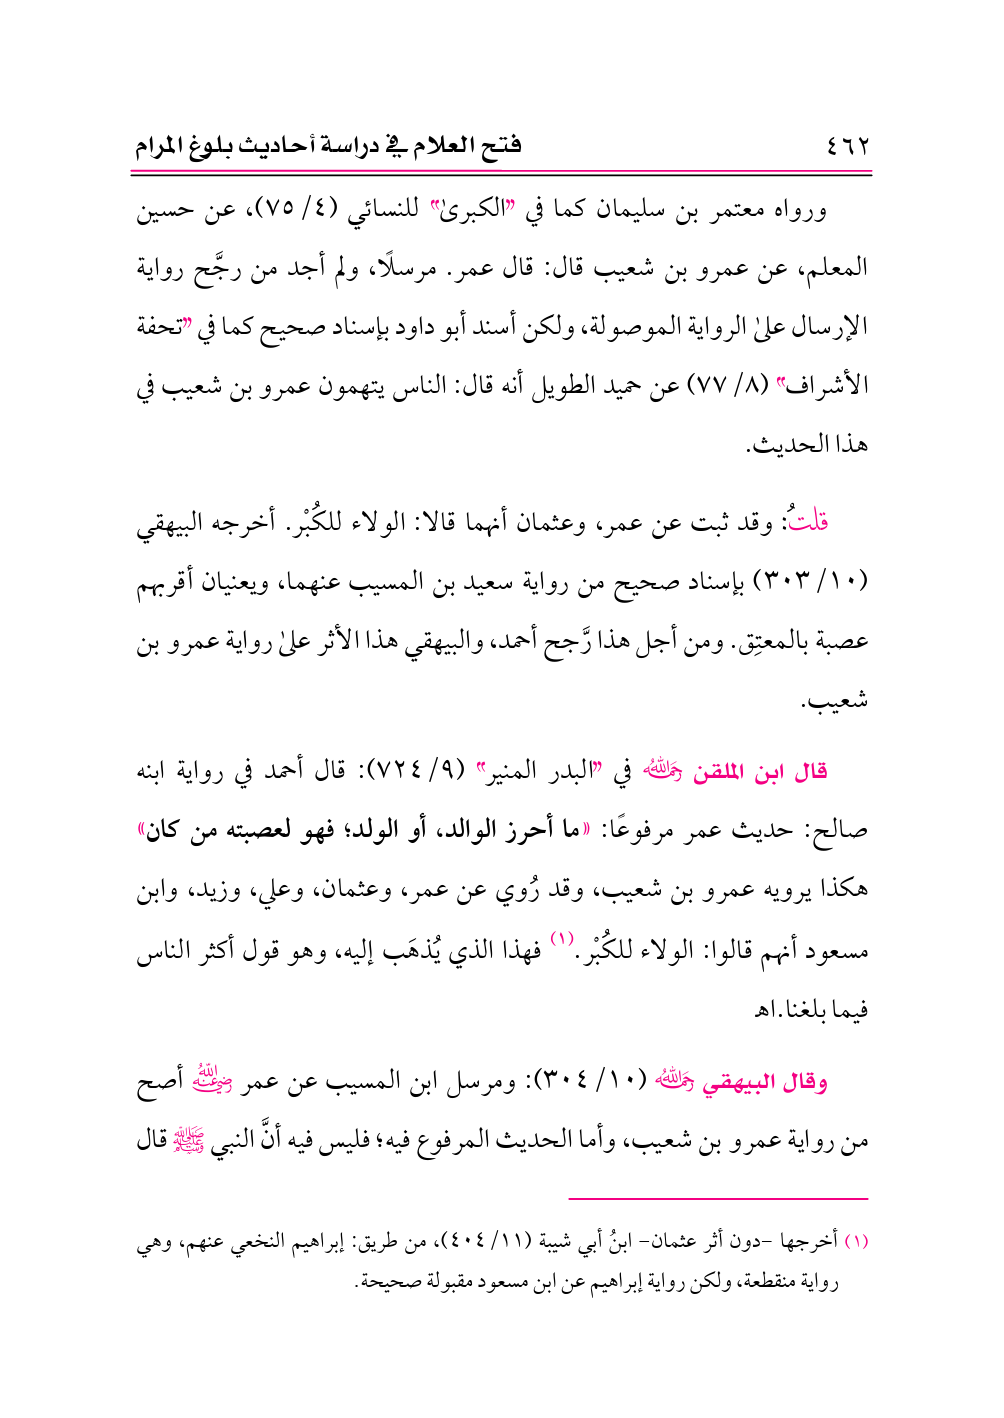 ٤٦٢ فتح العلام في دراسة أحاديث بلوغ المرام
ورواه معتمر بن سليمان كما في "الكبرىٰ" للنسائي (٤/ ٧٥)، عن حسين
المعلم، عن عمرو بن شعيب قال: قال عمر. مرسلًا، ولم أجد من رجَّح رواية
الإرسال علىٰ الرواية الموصولة، ولكن أسند أبو داود بإسناد صحيح كما في "تحفة
الأشراف" (٨/ ٧٧) عن حميد الطويل أنه قال: الناس يتهمون عمرو بن شعيب في
هذا الحديث.
قلتُ: وقد ثبت عن عمر، وعثمان أنهما قالا: الولاء للكُبْر. أخرجه البيهقي
(١٠/ ٣٠٣) بإسناد صحيح من رواية سعيد بن المسيب عنهما، ويعنيان أقربهم
عصبة بالمعتِق. ومن أجل هذا رَّجح أحمد، والبيهقي هذا الأثر علىٰ رواية عمرو بن
شعيب.
قال ابن الملقن رحمه الله في "البدر المنير" (٩/ ٧٢٤): قال أحمد في رواية ابنه
صالح: حديث عمر مرفوعًا: «ما أحرز الوالد، أو الولد؛ فهو لعصبته من كان»
هكذا يرويه عمرو بن شعيب، وقد رُوي عن عمر، وعثمان، وعلي، وزيد، وابن
مسعود أنهم قالوا: الولاء للكُبْر.(١) فهذا الذي يُذهَب إليه، وهو قول أكثر الناس
فيما بلغنا.اهـ
وقال البيهقي رحمه الله (١٠/ ٣٠٤): ومرسل ابن المسيب عن عمر رضي الله عنه أصح
من رواية عمرو بن شعيب، وأما الحديث المرفوع فيه؛ فليس فيه أنَّ النبي ﷺ قال
(١) أخرجها -دون أثر عثمان- ابنُ أبي شيبة (١١/ ٤٠٤)، من طريق: إبراهيم النخعي عنهم، وهي
رواية منقطعة، ولكن رواية إبراهيم عن ابن مسعود مقبولة صحيحة.